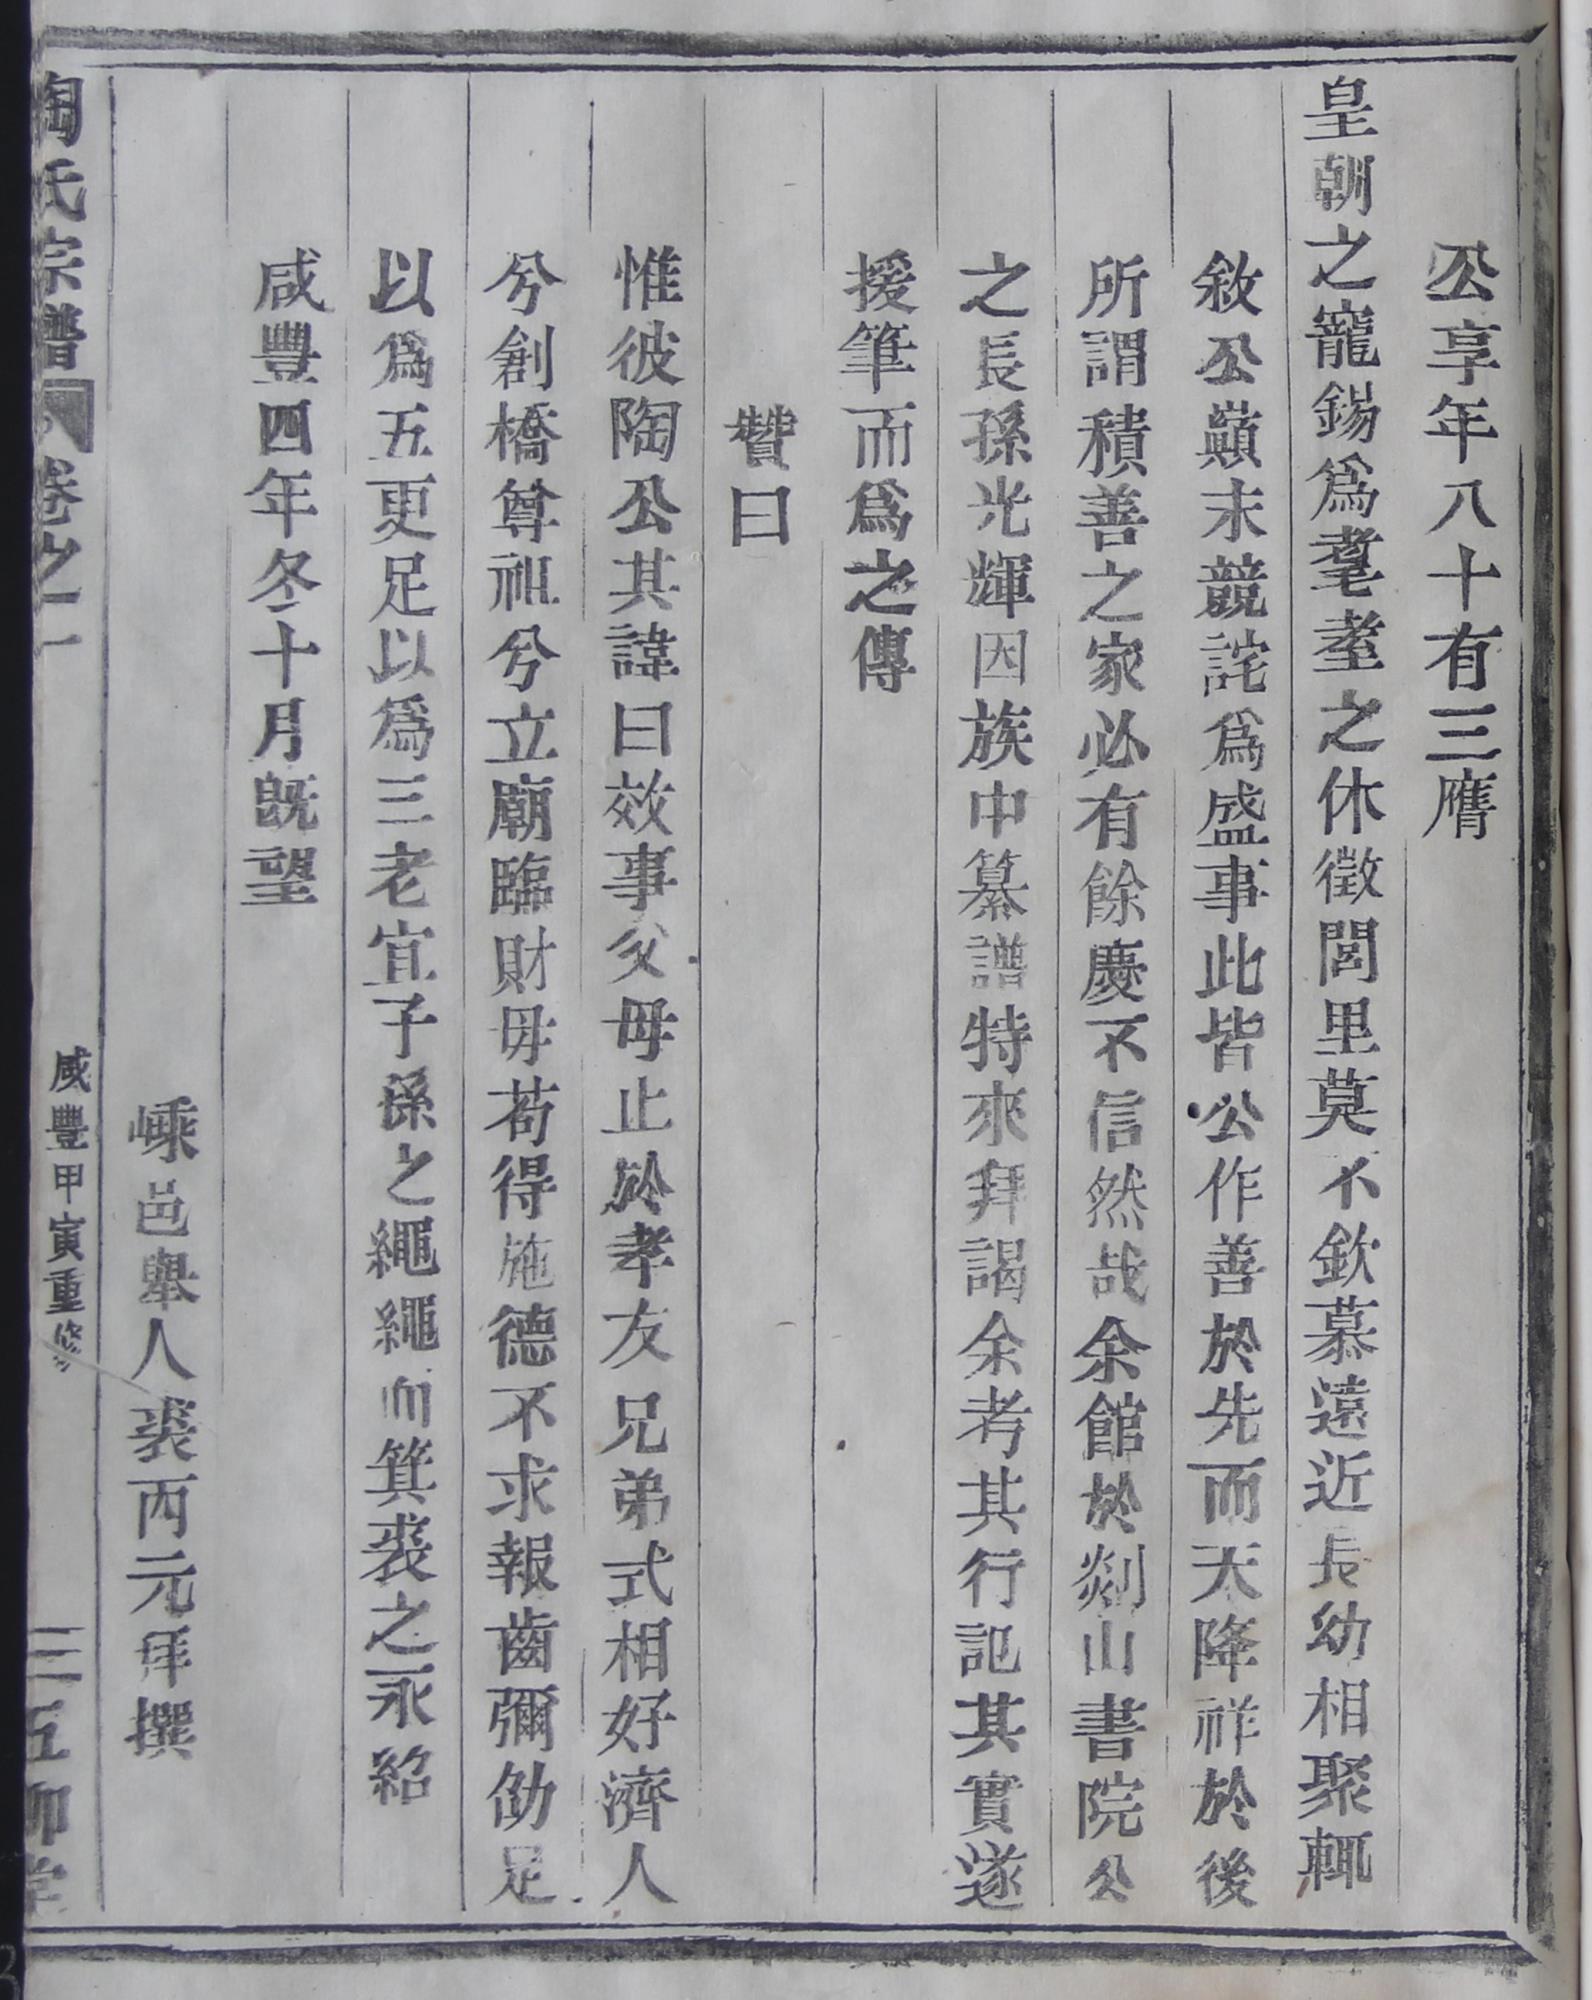 公享年八十有三膺
皇朝之寵錫爲耄耋之休徵閭里莫不欽慕遠近長幼相聚輒
敘公巔末競詫爲盛事此皆公作善於先而天降祥於後
所謂積善之家必有餘慶不信然哉余館於剡山書院公
之長孫光輝因族中纂譜特來拜謁余考其行記其實遂
援筆而爲之傳
贊曰
惟彼陶公其諱曰效事父母止於孝友兄弟式相好濟人
兮創橋尊祖兮立廟臨財毋苟得施德不求報齒彌劭足
以爲五更足以爲三老宜子孫之繩繩而箕裘之永紹
咸豐四年冬十月旣望
嵊邑舉人裘丙元拜撰
陶氏宗譜 卷之一 咸豐甲寅重修 三 五柳堂